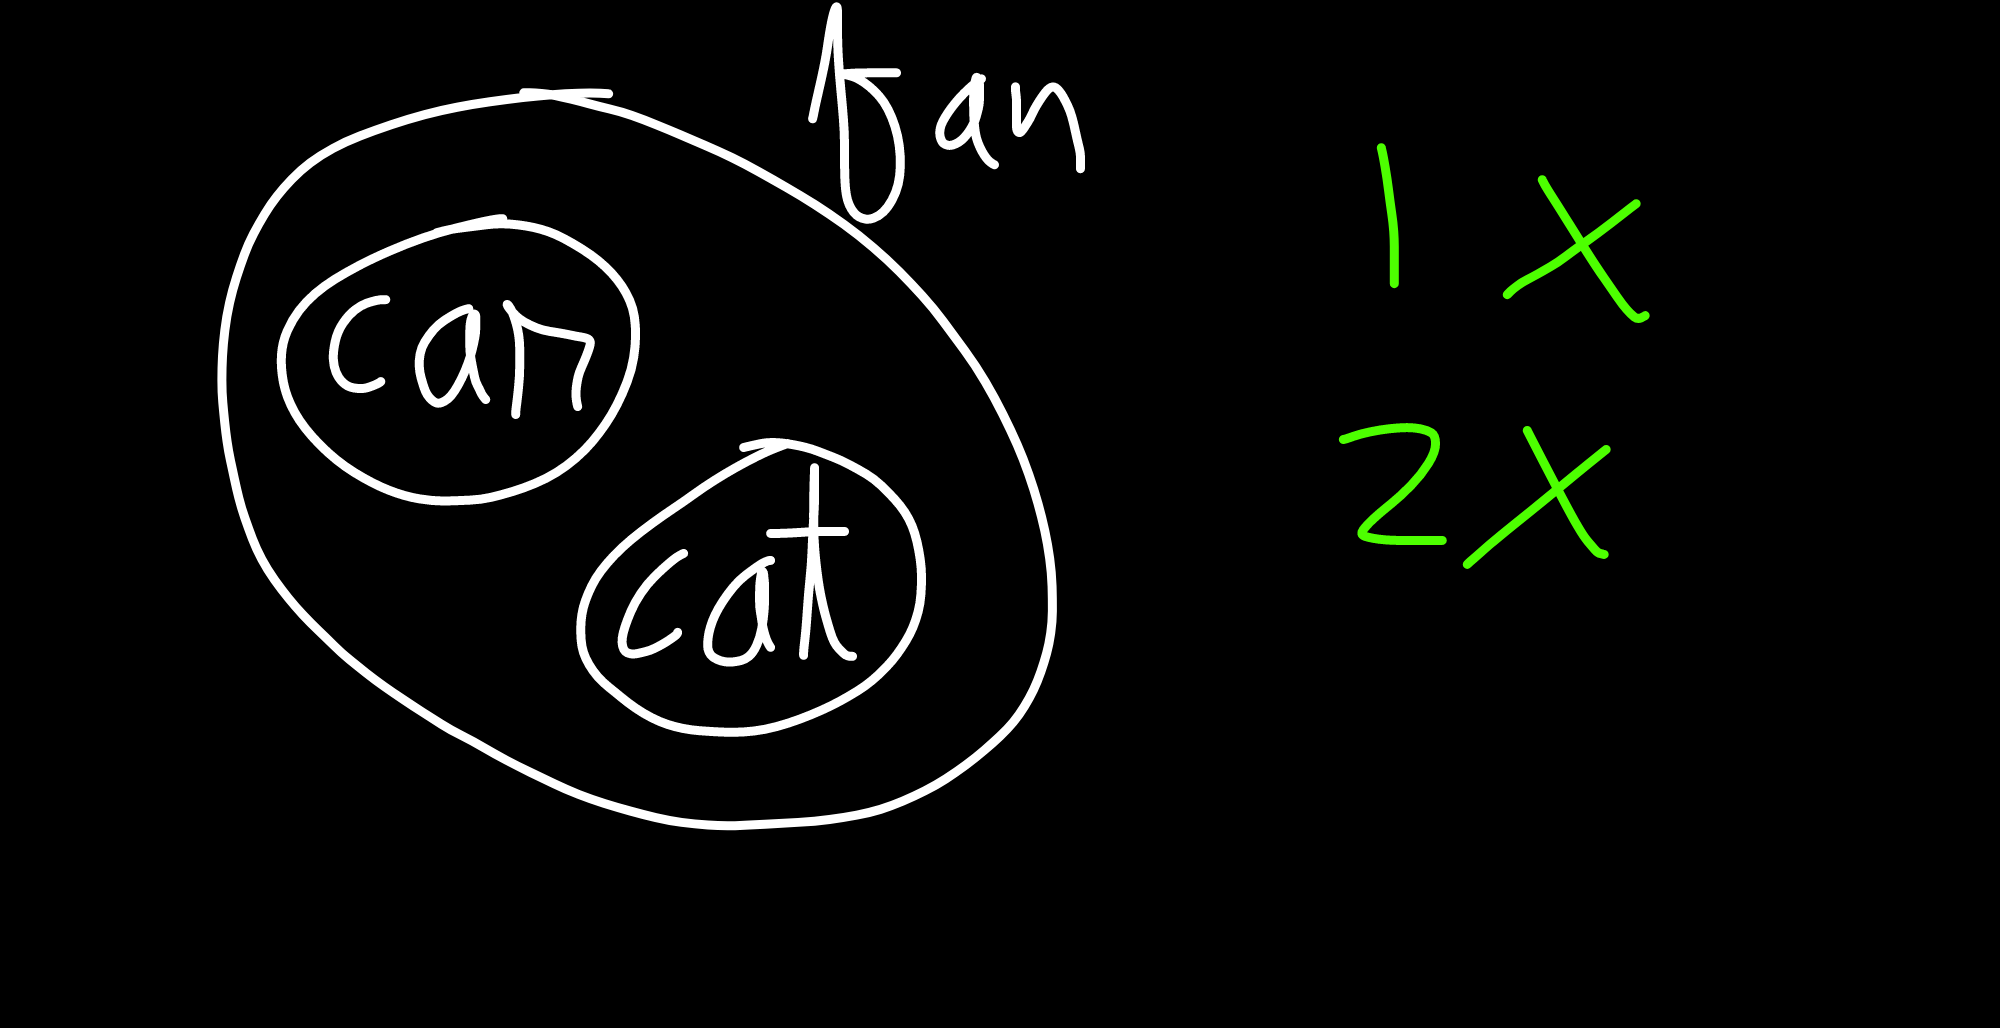 fan
car
cat
1x
2x